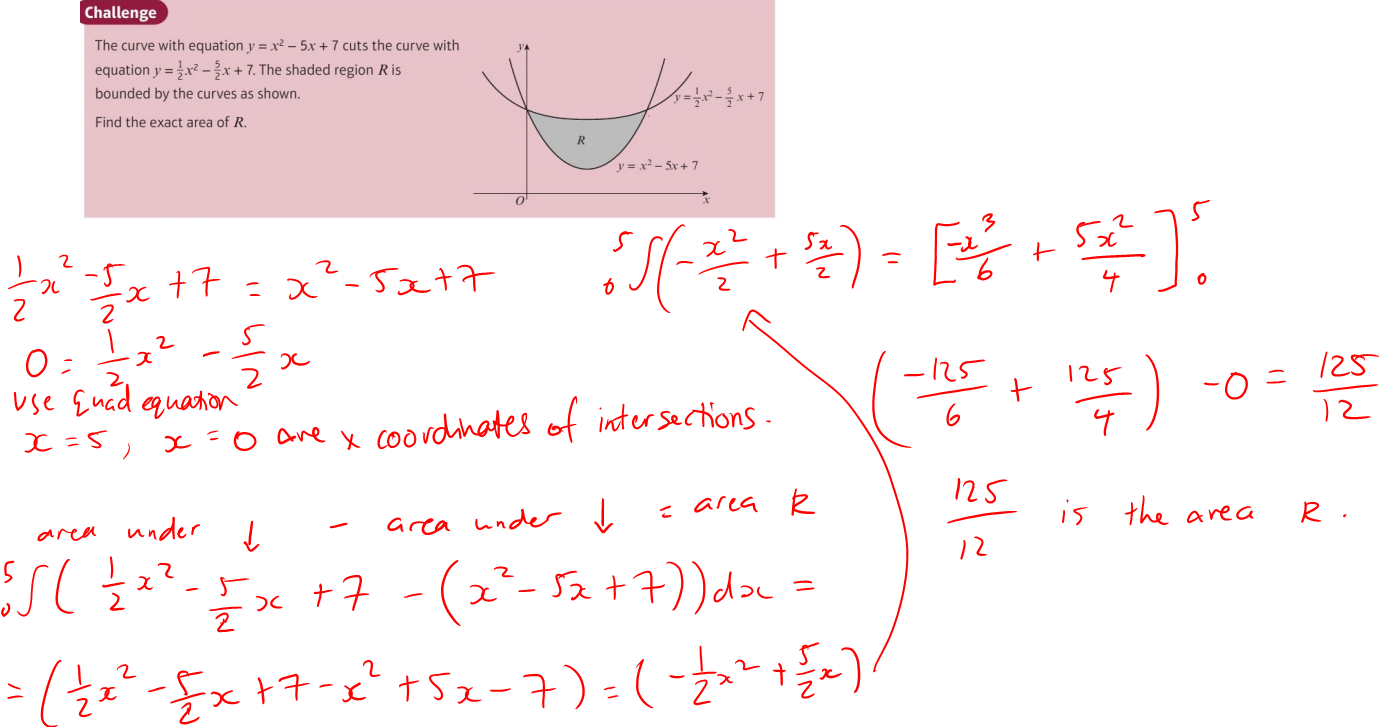 Challenge
The curve with equation y = x² – 5x + 7 cuts the curve with
equation y = ½x² – 5/2x + 7. The shaded region R is
bounded by the curves as shown.
Find the exact area of R.
y
y = ½x² – 5/2 x + 7
R
y = x² – 5x + 7
O
x
1/2 x² - 5/2 x + 7 = x² - 5x + 7
0 = 1/2 x² - 5/2 x
Use Quad equation
x = 5, x = 0 are x coordinates of intersections.
area under ↓ - area under ↓ = area R
₀⁵∫( 1/2 x² - 5/2 x + 7 - (x² - 5x + 7))dx =
= (1/2 x² - 5/2 x + 7 - x² + 5x - 7) = (-1/2 x² + 5/2 x)
₀⁵∫(-x²/2 + 5x/2) = [-x³/6 + 5x²/4]⁵₀
(-125/6 + 125/4) - 0 = 125/12
125/12 is the area R.